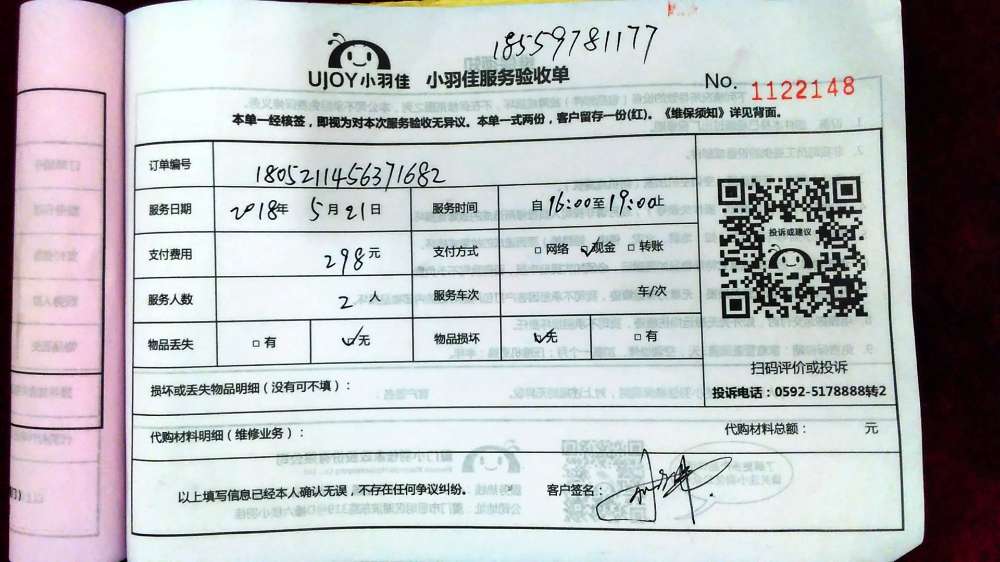 18559781177
UJOY小羽佳 小羽佳服务验收单
No. 1122148
本单一经核签，即视为对本次服务验收无异议。本单一式两份，客户留存一份(红)。《维保须知》详见背面。
订单编号 1805211456371682
服务日期 2018年 5月21日 服务时间 自16:00至19:00止
支付费用 298元 支付方式 □网络 ☑现金 □转账
投诉或建议
服务人数 2人 服务车次 车/次
物品丢失 □有 ☑无 物品损坏 ☑无 □有
扫码评价或投诉
损坏或丢失物品明细（没有可不填）：
投诉电话：0592-5178888转2
代购材料明细（维修业务）： 代购材料总额： 元
以上填写信息已经本人确认无误，不存在任何争议纠纷。 客户签名：